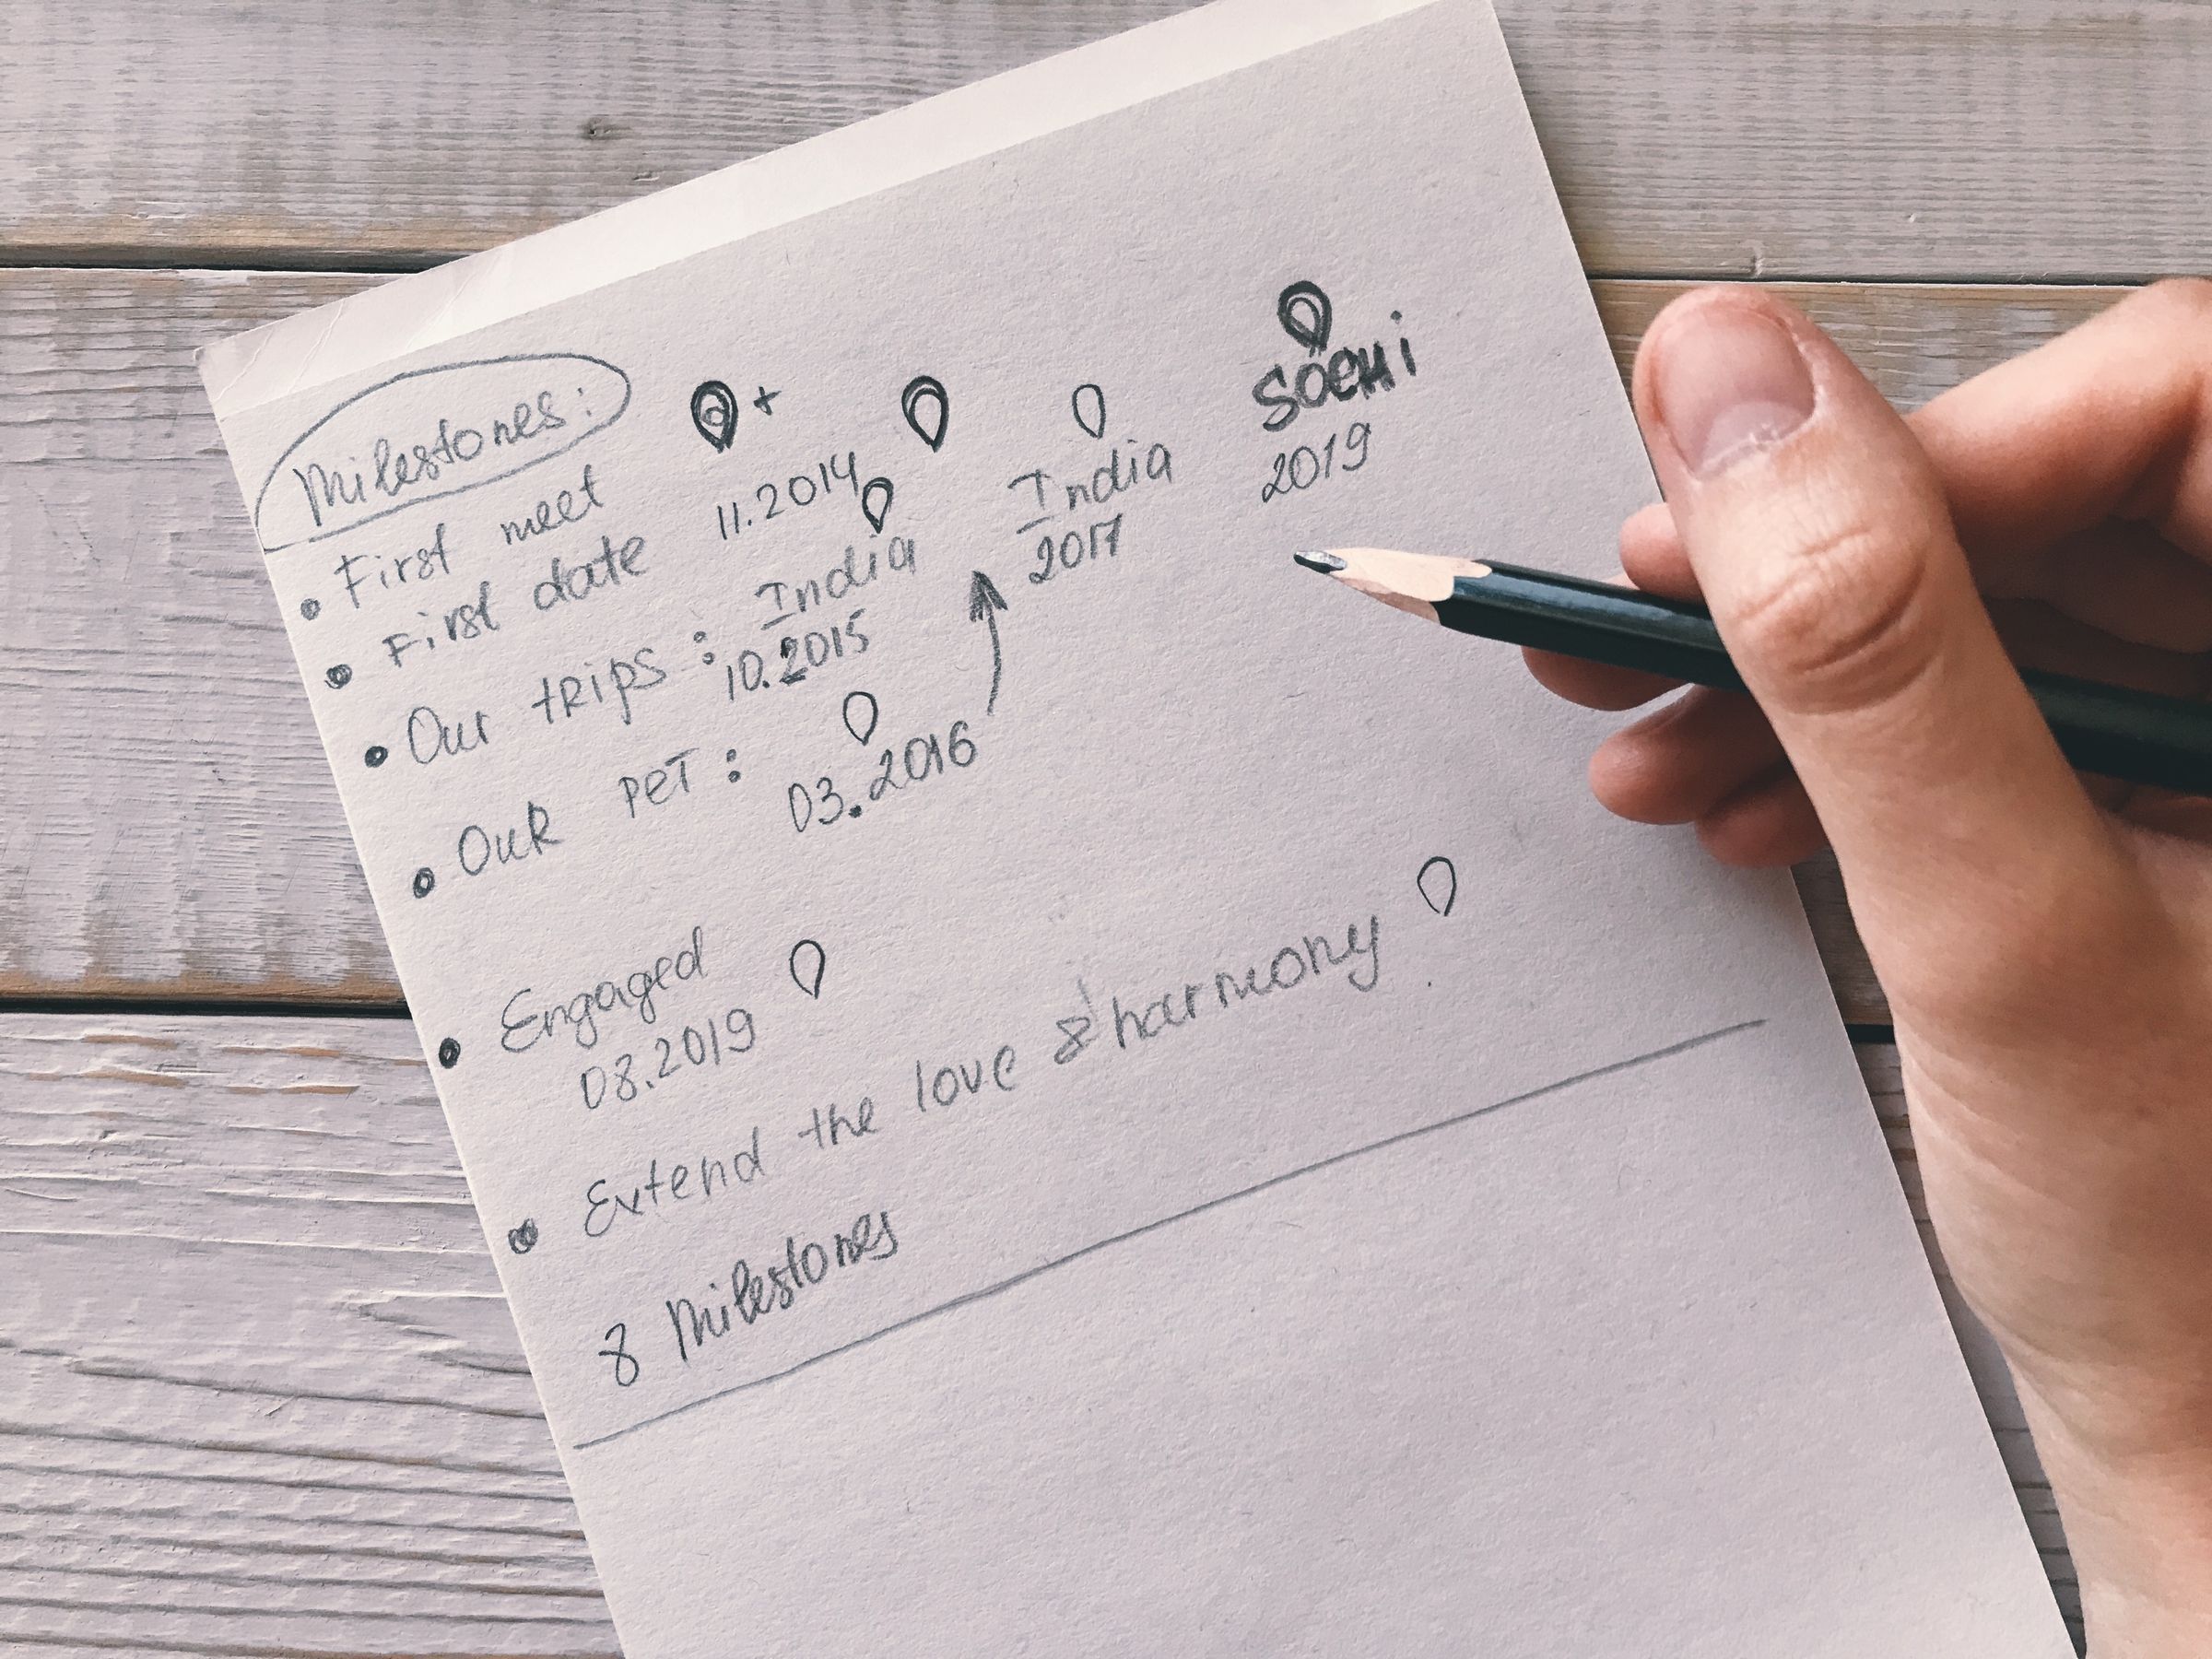 Milestones:
• First meet +
• First date 11.2014
• Our trips: India 10.2015 India 2017 Sochi 2019
• Our pet: 03.2016
• Engaged
08.2019
• Extend the love & harmony
8 Milestones